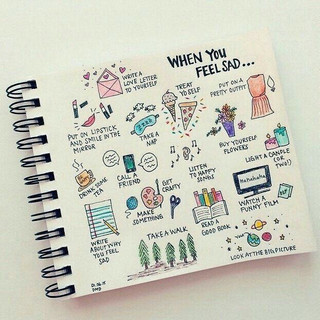 WHEN YOU
FEEL SAD...
WRITE A
LOVE LETTER
TO YOURSELF
TREAT
YO SELF
PUT ON A
PRETTY OUTFIT
PUT ON LIPSTICK
AND SMILE IN THE
MIRROR
TAKE A
NAP
BUY YOURSELF
FLOWERS
LIGHT A CANDLE
(OR
TWO!)
DRINK SOME
TEA
CALL A
FRIEND
LISTEN
TO HAPPY
SONGS
GET
CRAFTY
MAKE
SOMETHING
READ A
GOOD BOOK
Hahahaha
WATCH A
FUNNY FILM
WRITE
ABOUT WHY
YOU FEEL
SAD
TAKE A WALK
LOOK AT THE BIG PICTURE